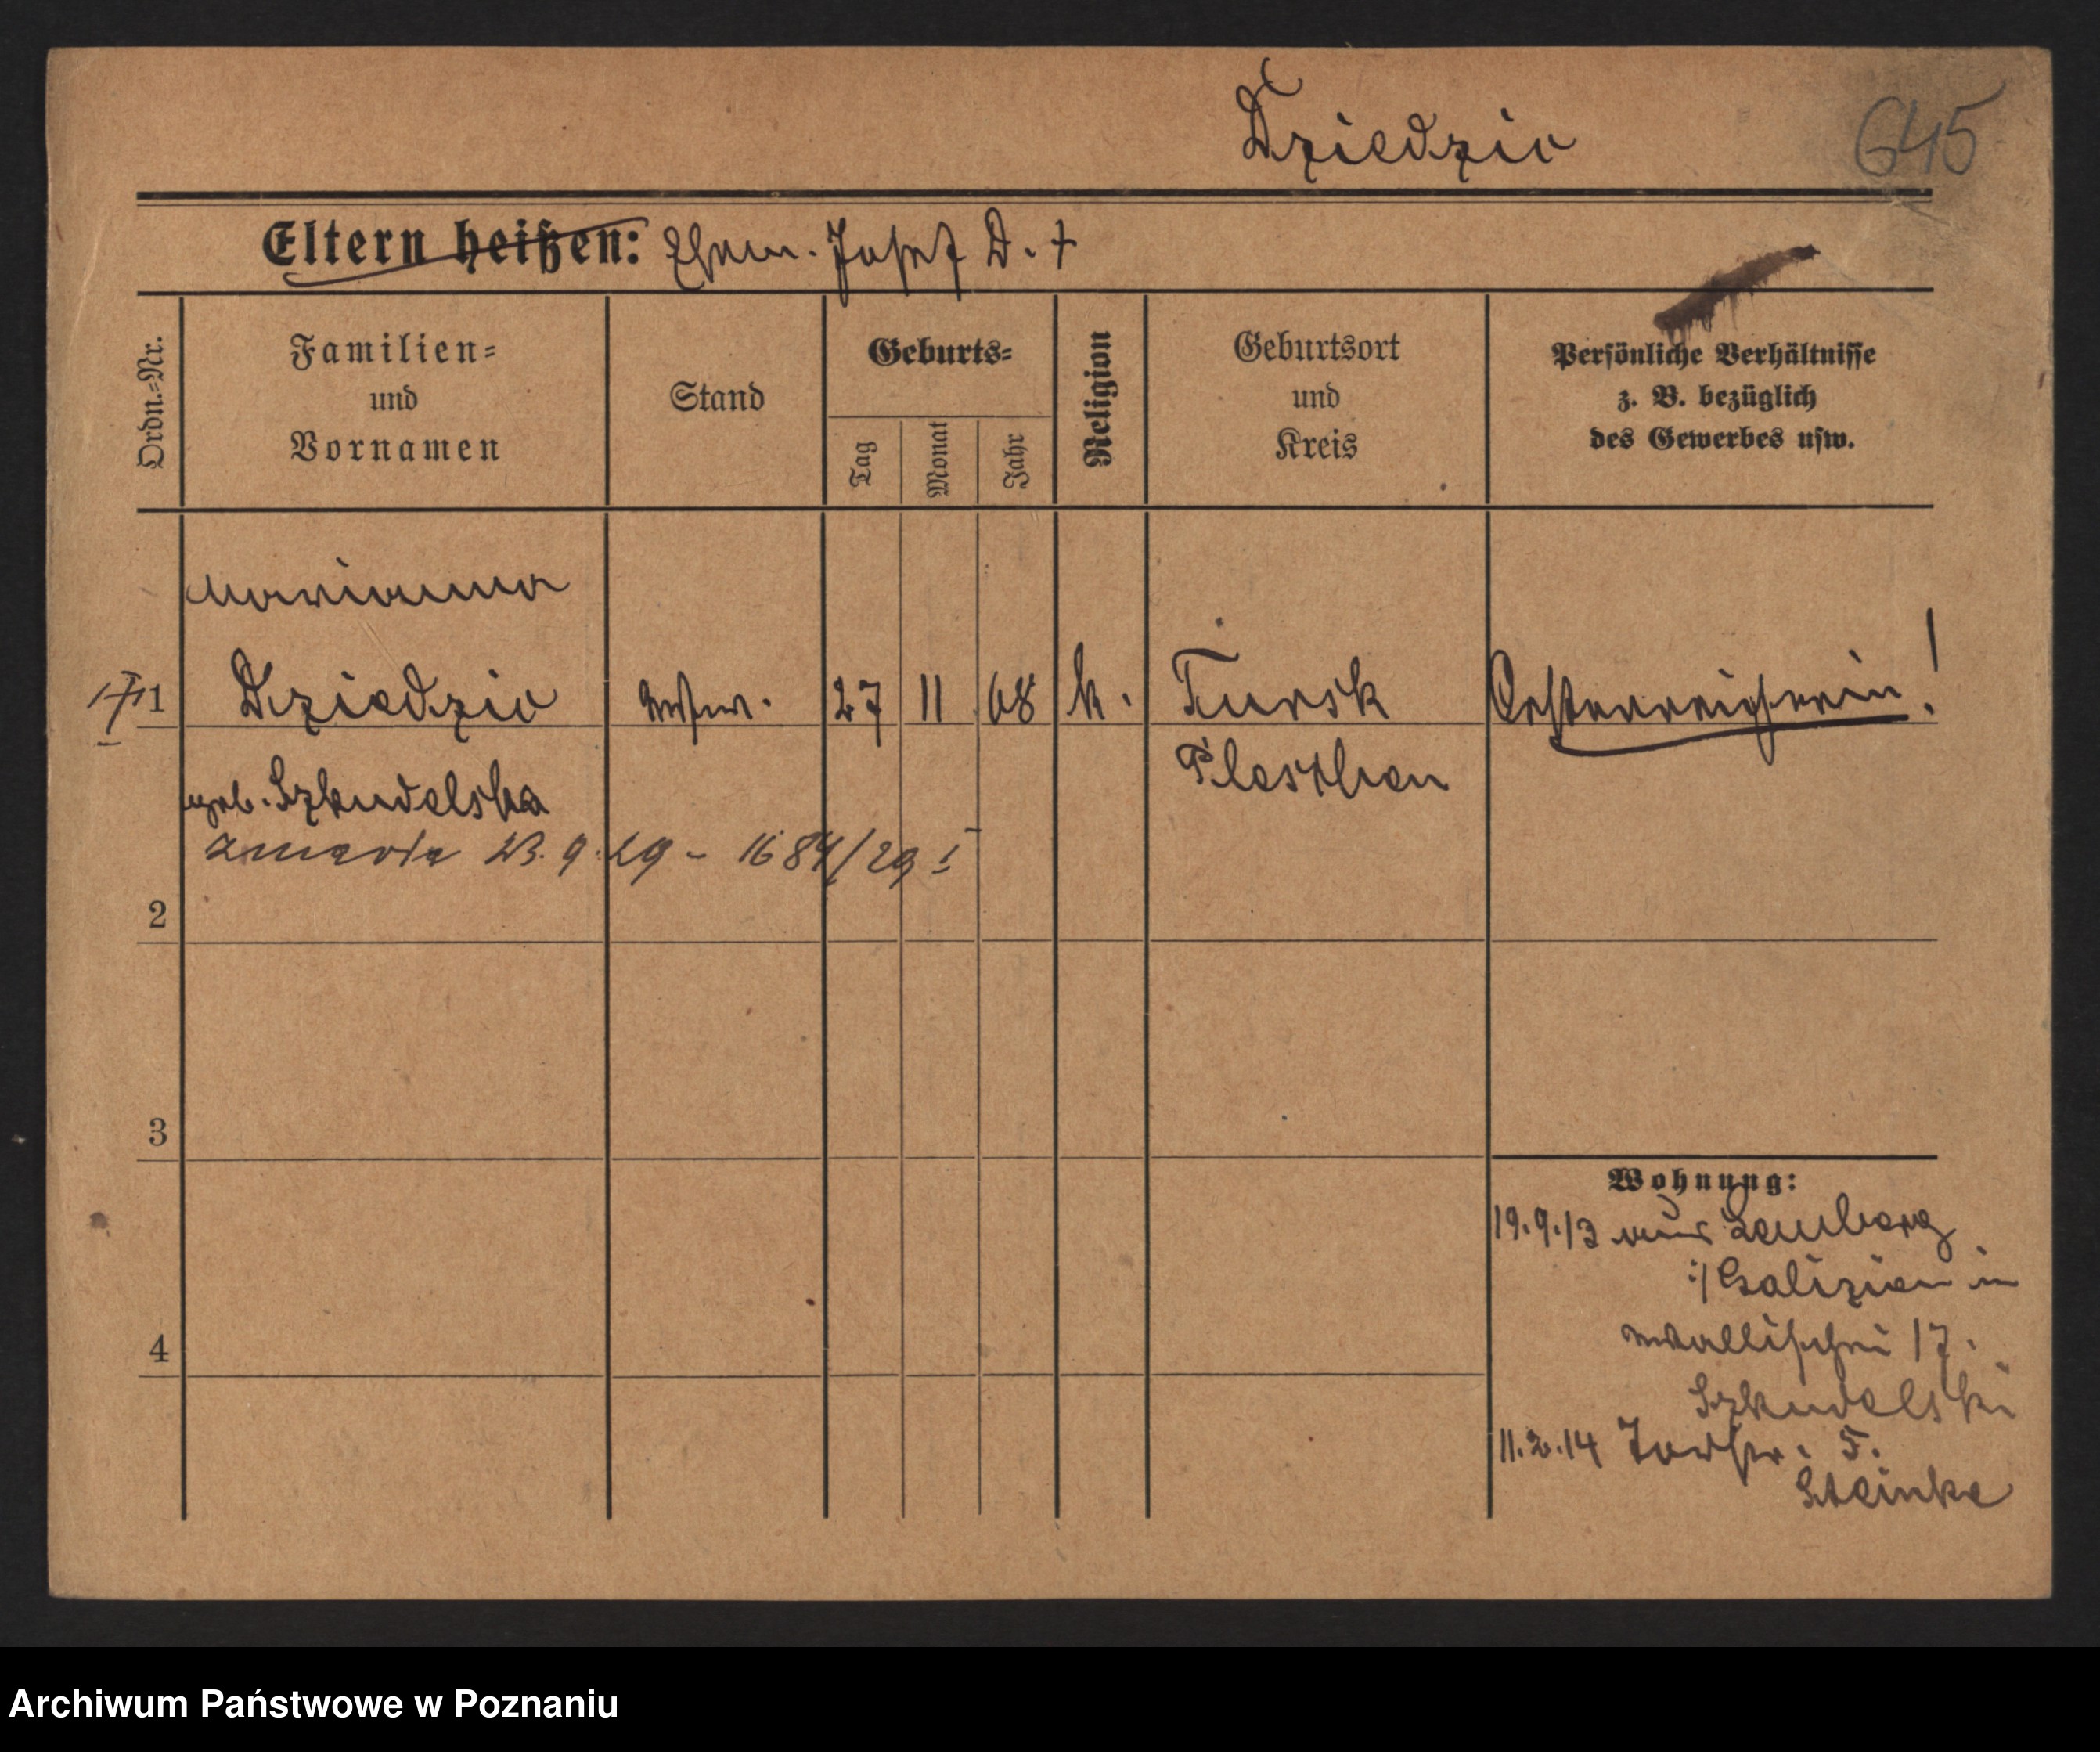 Dziedzic
645
Eltern heißen: Ehem. Josef D. †
Ordn.=Nr.
Familien=
und
Vornamen
Stand
Geburts=
Tag
Monat
Jahr
Religion
Geburtsort
und
Kreis
Persönliche Verhältnisse
z. B. bezüglich
des Gewerbes usw.
Marianna
1 Dziedzic Wwe. 27 11 68 k. Tursk Oesterreicherin!
Pleschen
geb. Szkudelska
zmarła 23.9.29 - 1684/29 I
2
3
4
Wohnung:
19.9.13 aus Lemberg
Galizien in
Wallischei 17.
Szkudelski
11.2.14 Torstr. 5.
Steinke
Archiwum Państwowe w Poznaniu